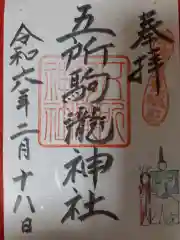 奉拝
五所駒瀧神社
令和六年二月十八日